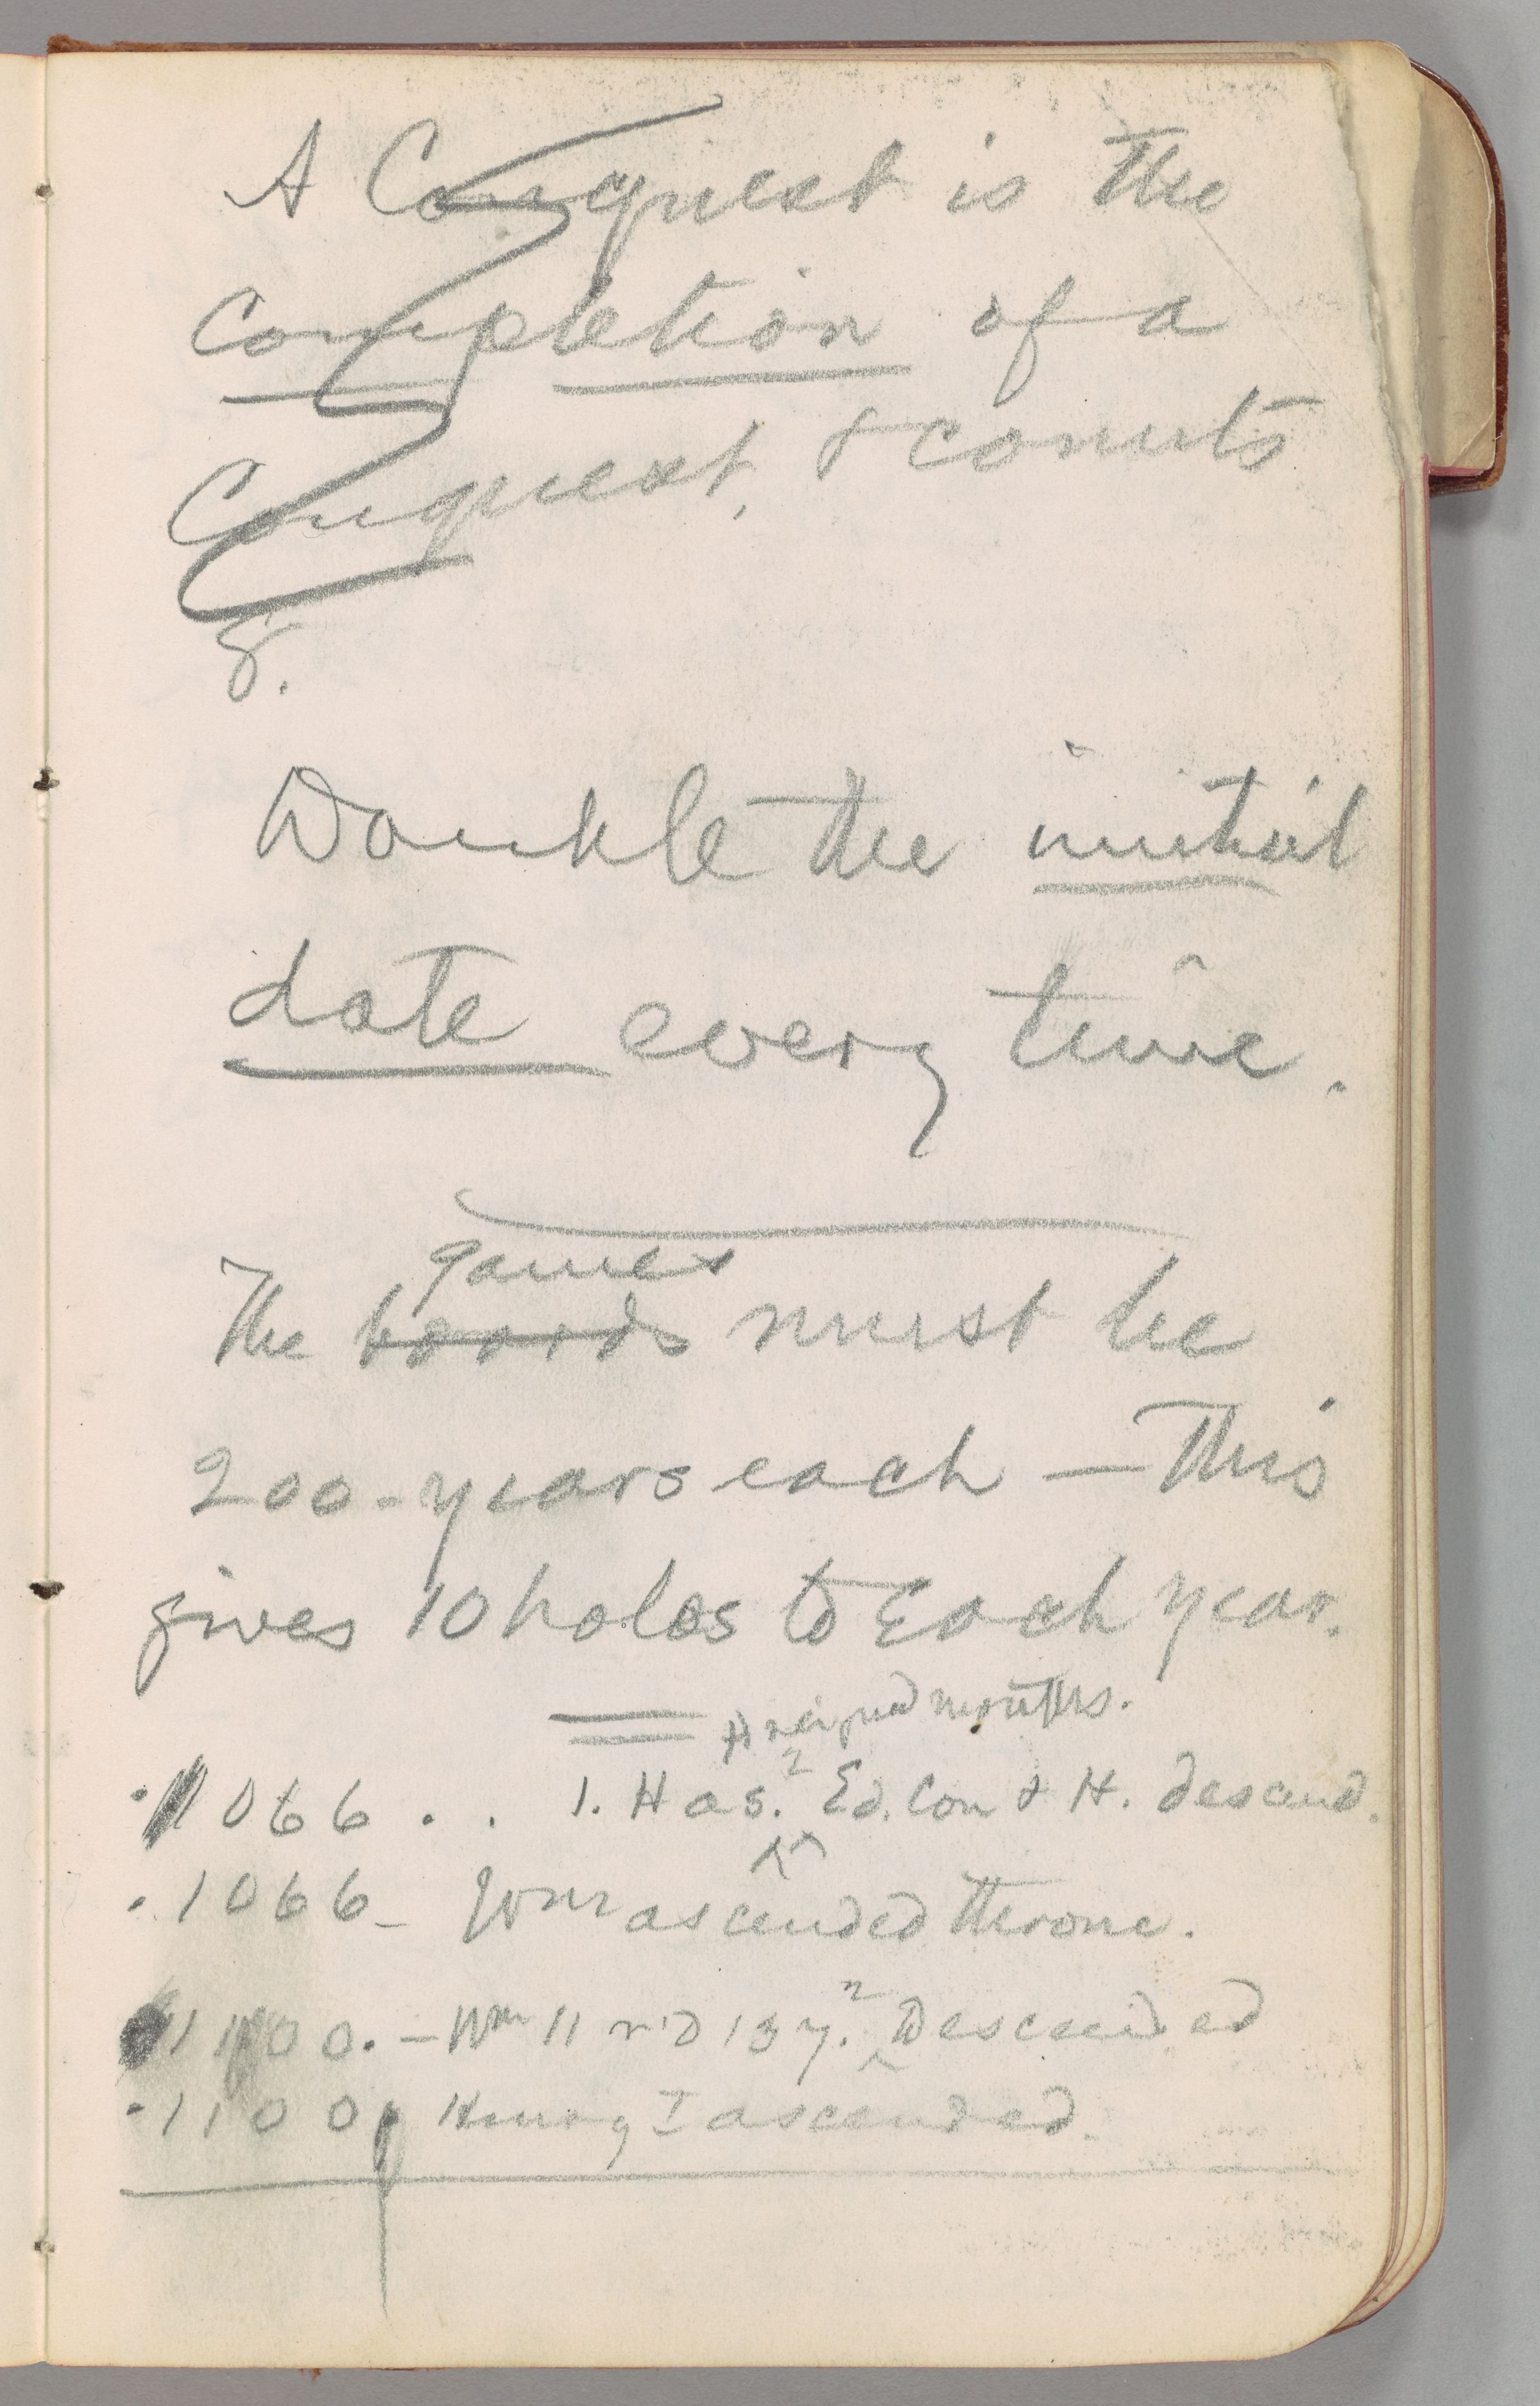 A Conquest is the
completion of a
Conquest, & counts
8.
Double the initial
date every time.
games
The boards must be
200-years each — This
gives 10 holes to Each year.
reigned months.
1066 . . 1. Has. 2 Ed. Con & H. descend.
1066 - Wm ascended throne.
1100. - Wm 11 r'd 13 y. 2 Descended
1100, Henry I ascended.